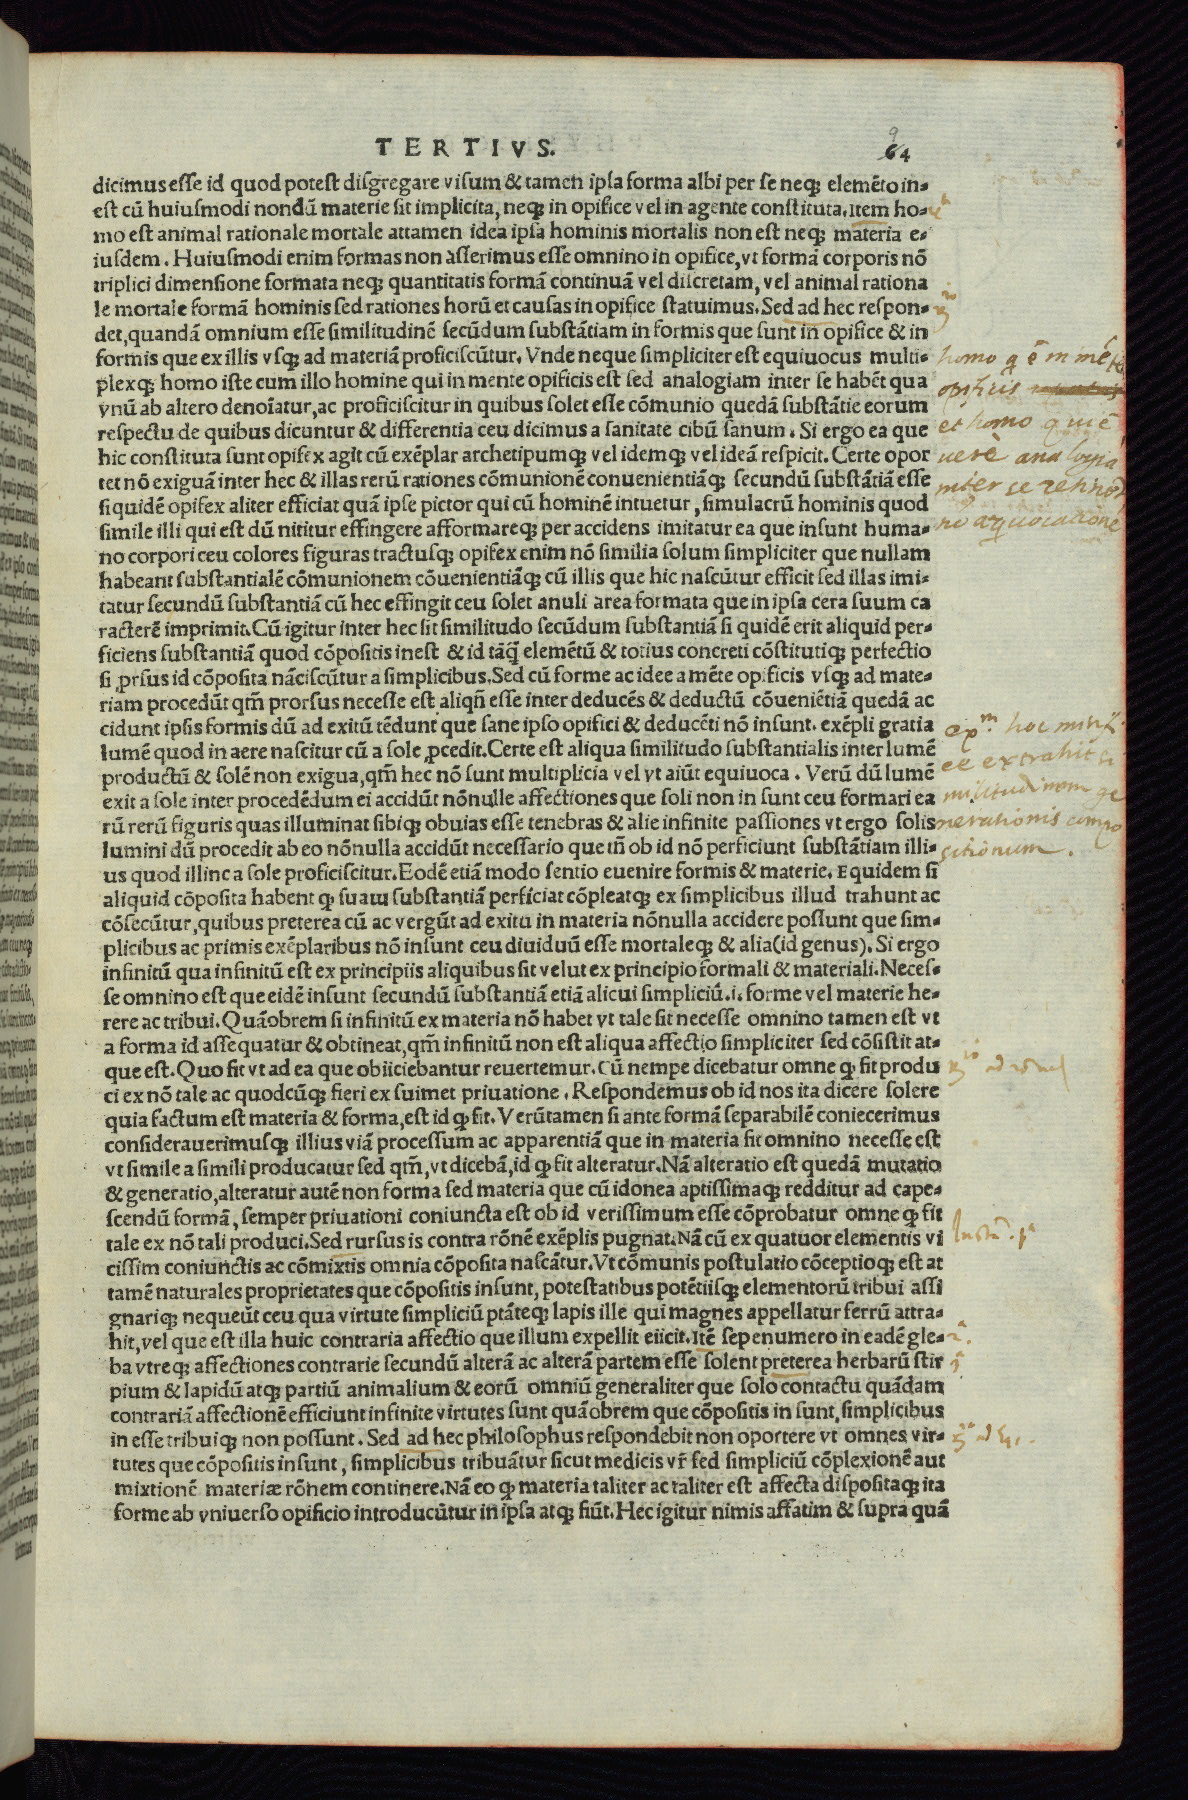 TERTIVS.
64
dicimus esse id quod potest disgregare visum & tamen ipsa forma albi per se neqꝫ elemēto in-
est cū huiusmodi nondū materie sit implicita, neqꝫ in opifice vel in agente constituta. Item ho-
mo est animal rationale mortale attamen idea ipsa hominis mortalis non est neqꝫ materia e-
iusdem. Huiusmodi enim formas non asserimus esse omnino in opifice, vt formā corporis nō
triplici dimensione formata neqꝫ quantitatis formā continuā vel discretam, vel animal rationa
le mortale formā hominis sed rationes horū et causas in opifice statuimus. Sed ad hec respon-
det, quandā omnium esse similitudinē secūdum substātiam in formis que sunt in opifice & in
formis que ex illis vsqꝫ ad materiā proficiscūtur. Vnde neque simpliciter est equiuocus multi-
plexqꝫ homo iste cum illo homine qui in mente opificis est sed analogiam inter se habēt qua
vnū ab altero denoīatur, ac proficiscitur in quibus solet esse cōmunio quedā substātie eorum
respectu de quibus dicuntur & differentia ceu dicimus a sanitate cibū sanum. Si ergo ea que
hic constituta sunt opifex agit cū exēplar archetipumqꝫ vel idemqꝫ vel ideā respicit. Certe opor
tet nō exiguā inter hec & illas rerū rationes cōmunionē conuenientiāqꝫ secundū substātiā esse
si quidē opifex aliter efficiat quā ipse pictor qui cū hominē intuetur, simulacrū hominis quod
simile illi qui est dū nititur effingere afformareqꝫ per accidens imitatur ea que insunt huma-
no corpori ceu colores figuras tractusqꝫ opifex enim nō similia solum simpliciter que nullam
habeant substantialē cōmunionem cōuenientiāqꝫ cū illis que hic nascūtur efficit sed illas imi-
tatur secundū substantiā cū hec effingit ceu solet anuli area formata que in ipsa cera suum ca
racterē imprimit. Cū igitur inter hec sit similitudo secūdum substantiā si quidē erit aliquid per-
ficiens substantiā quod cōpositis inest & id tāq̄ elemētū & totius concreti cōstitutiqꝫ perfectio
si ꝓrsus id cōposita nāciscūtur a simplicibus. Sed cū forme ac idee a mēte opificis vsqꝫ ad mate-
riam procedūt qm̄ prorsus necesse est aliqñ esse inter deducēs & deductū cōueniētiā quedā ac
cidunt ipsis formis dū ad exitū tēdunt que sane ipso opifici & deducēti nō insunt. exēpli gratia
lumē quod in aere nascitur cū a sole ꝓcedit. Certe est aliqua similitudo substantialis inter lumē
productū & solē non exigua, qm̄ hec nō sunt multiplicia vel vt aiūt equiuoca. Verū dū lumē
exit a sole inter procedēdum ei accidūt nōnulle affectiones que soli non in sunt ceu formari ea
rū rerū figuris quas illuminat sibiqꝫ obuias esse tenebras & alie infinite passiones vt ergo solis
lumini dū procedit ab eo nōnulla accidūt necessario que tñ ob id nō perficiunt substātiam illi-
us quod illinc a sole proficiscitur. Eodē etiā modo sentio euenire formis & materie. Equidem si
aliquid cōposita habent qꝫ suam substantiā perficiat cōpleatqꝫ ex simplicibus illud trahunt ac
cōsecūtur, quibus preterea cū ac vergūt ad exitū in materia nōnulla accidere possunt que sim-
plicibus ac primis exēplaribus nō insunt ceu diuiduū esse mortaleqꝫ & alia (id genus). Si ergo
infinitū qua infinitū est ex principiis aliquibus sit velut ex principio formali & materiali. Neces-
se omnino est que eidē insunt secundū substantiā etiā alicui simpliciū. i. forme vel materie he-
rere ac tribui. Quāobrem si infinitū ex materia nō habet vt tale sit necesse omnino tamen est vt
a forma id assequatur & obtineat, qm̄ infinitū non est aliqua affectio simpliciter sed cōsistit at-
que est. Quo fit vt ad ea que obiiciebantur reuertemur. Cū nempe dicebatur omne qꝫ fit produ
ci ex nō tale ac quodcūqꝫ fieri ex suimet priuatione. Respondemus ob id nos ita dicere solere
quia factum est materia & forma, est id qꝫ fit. Verūtamen si ante formā separabilē coniecerimus
considerauerimusqꝫ illius viā processum ac apparentiā que in materia fit omnino necesse est
vt simile a simili producatur sed qm̄, vt dicebā, id qꝫ fit alteratur. Nā alteratio est quedā mutatio
& generatio, alteratur autē non forma sed materia que cū idonea aptissimaqꝫ redditur ad cape-
scendū formā, semper priuationi coniuncta est ob id verissimum esse cōprobatur omne qꝫ fit
tale ex nō tali produci. Sed rursus is contra rōnē exēplis pugnat. Nā cū ex quatuor elementis vi
cissim coniunctis ac cōmixtis omnia cōposita nascātur. Vt cōmunis postulatio cōceptioqꝫ est at
tamē naturales proprietates que cōpositis insunt, potestatibus potētiisqꝫ elementorū tribui assi
gnariqꝫ nequeūt ceu qua virtute simpliciū ptāteqꝫ lapis ille qui magnes appellatur ferrū attra-
hit, vel que est illa huic contraria affectio que illum expellit eiicit. Itē sepenumero in eadē gle-
ba vtreqꝫ affectiones contrarie secundū alterā ac alterā partem esse solent preterea herbarū stir
pium & lapidū atqꝫ partiū animalium & eorū omniū generaliter que solo contactu quādam
contrariā affectionē efficiunt infinite virtutes sunt quāobrem que cōpositis in sunt, simplicibus
in esse tribuiqꝫ non possunt. Sed ad hec philosophus respondebit non oportere vt omnes vir-
tutes que cōpositis insunt, simplicibus tribuātur sicut medicis vr̄ sed simpliciū cōplexionē aut
mixtionē materiæ rōnem continere. Nā eo qꝫ materia taliter ac taliter est affecta dispositaqꝫ ita
forme ab vniuerso opificio introducūtur in ipsa atqꝫ fiūt. Hec igitur nimis affatim & supra quā
homo q ē in mēte
opificis
et homo qui ē
analogia
inter se
nō æquocationē
hoc
ee extrahit si
militudinem ge
nerationis compo
sitionum.